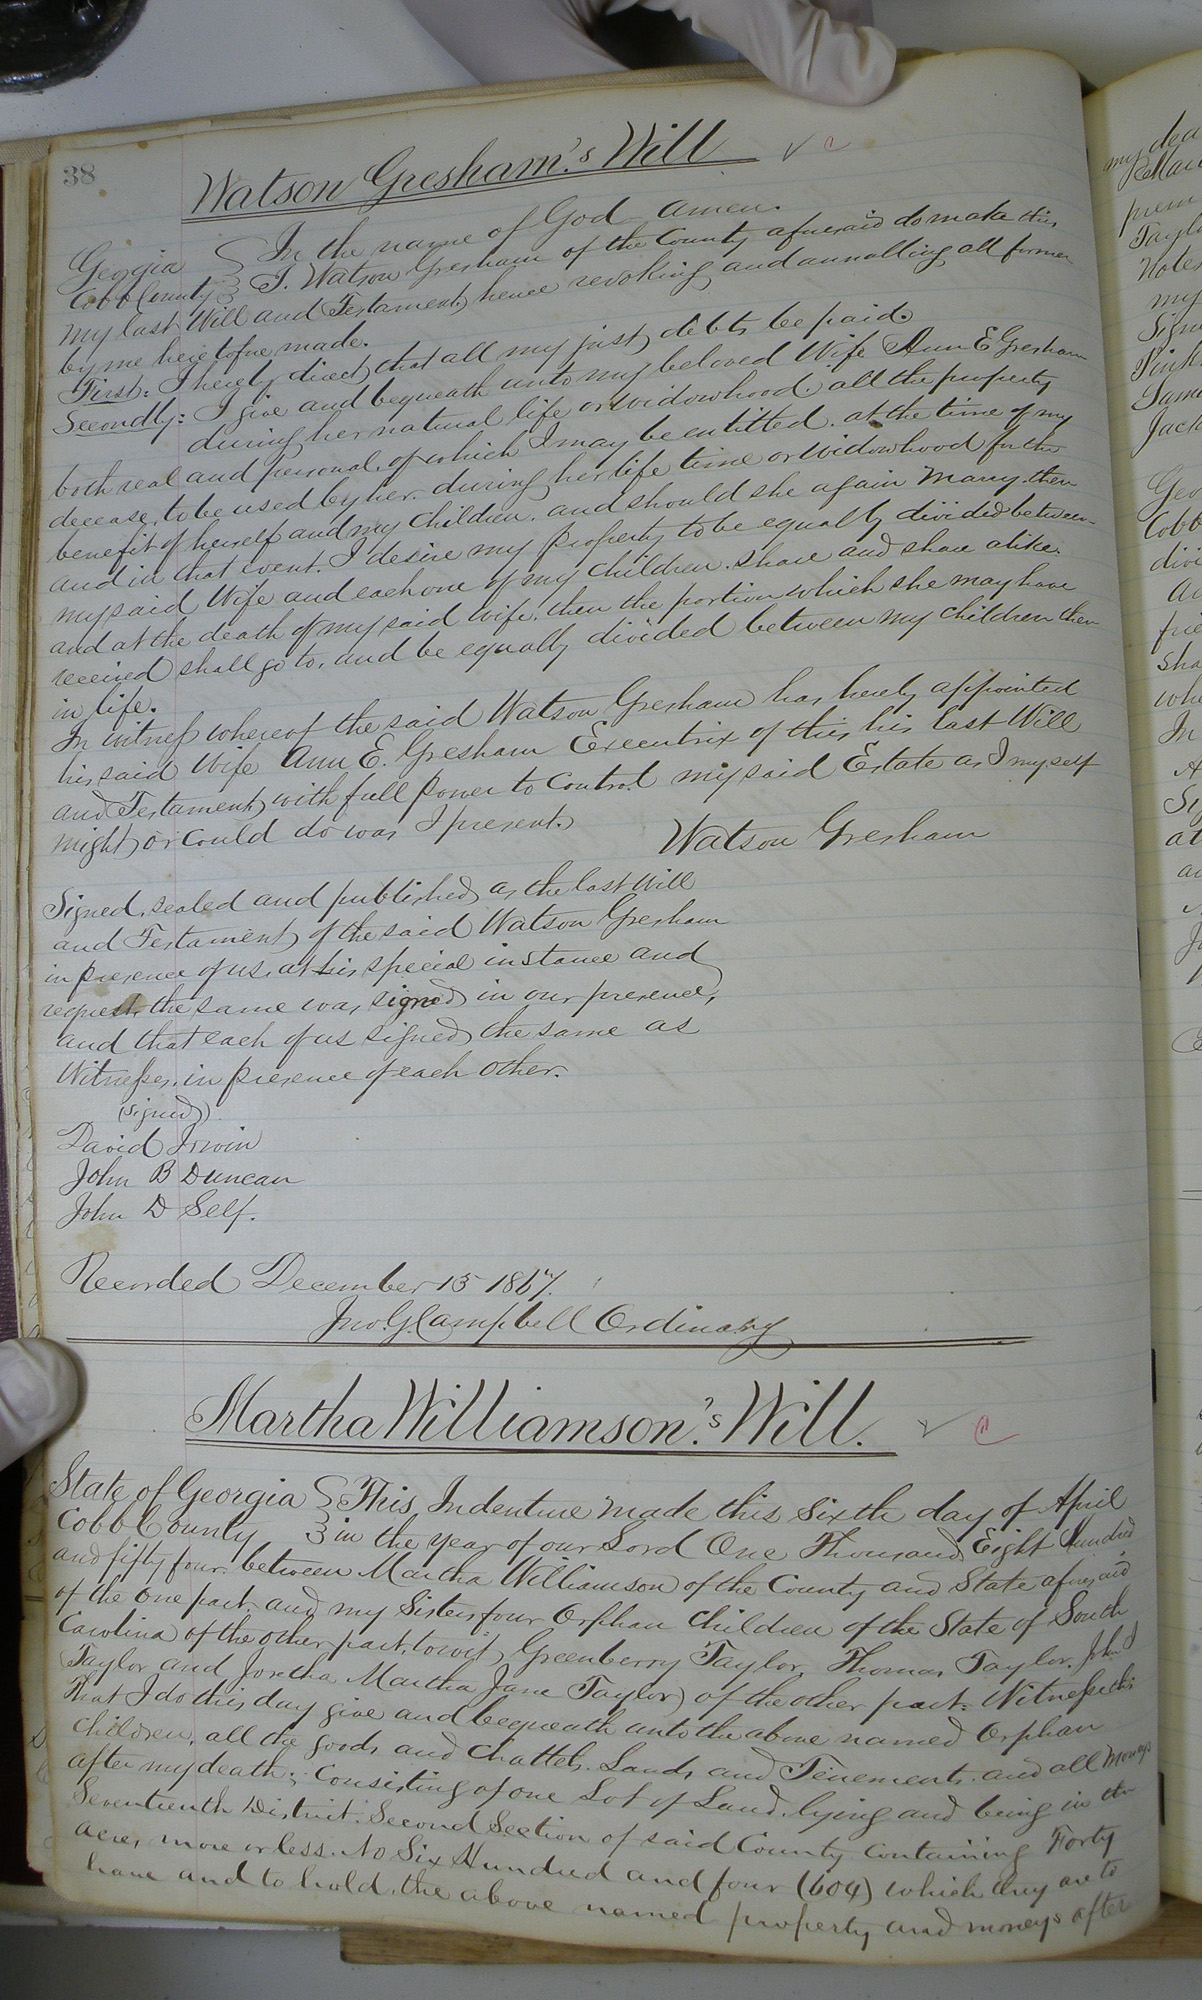 38
Watson Gresham's Will
In the name of God amen.
Georgia } I. Watson Gresham of the County aforesaid do make this
Cobb County } my last Will and Testament, hence revoking and annulling all former
by me heretofore made.
First: I hereby direct that all my just debts be paid.
Secondly: I give and bequeath unto my beloved Wife Ann E Gresham
during her natural life or widowhood. all the property
both real and personal. of which I may be entitled. at the time of my
decease, to be used by her. during her life time or widowhood for the
benefit of herself and my children. and should she again Marry. then
and in that event. I desire my property to be equally divided between
my said Wife and each one of my children. share and share alike.
and at the death of my said wife. then the portion which she may have
received shall go to, and be equally divided between my children then
in life.
In witness whereof the said Watson Gresham has hereby appointed
his said Wife Ann E. Gresham Executrix of this his last Will
and Testament, with full power to Control my said Estate as I myself
might, or could do was I present.
Watson Gresham
Signed, sealed and published as the last Will
and Testament, of the said Watson Gresham
in presence of us, at his special instance and
request, the same was signed in our presence,
and that each of us signed the same as
Witnesses, in presence of each other.
(signed)
David Irwin
John B Duncan
John D Self.
Recorded December 15 1867.
Jno. G. Campbell Ordinary
Martha Williamson's Will.
State of Georgia } This Indenture made this sixth day of April
Cobb County } in the year of our Lord One Thousand Eight Hundred
and fifty four. between Martha Williamson of the County and State aforesaid
of the one part. and my Sisters four Orphan Children of the State of South
Carolina of the other part, towit, Greenberry Taylor, Thomas Taylor. John
Taylor and Martha Jane Taylor of the other part: Witnesseth:
That I do this day give and bequeath unto the above named Orphan
Children. all the goods and Chattels. Lands and Tenements. and all Moneys
after my death; Consisting of one Lot of Land. lying and being in the
Seventeenth District. Second Section of said County. Containing Forty
acres, more or less. No Six Hundred and four (604) which they are to
have and to hold. the above named property and moneys after
my dea
prem
Taylo
Notes
my
Sign
Pink
Jack
Geo
Cobb
divi
sha
whe
In
at